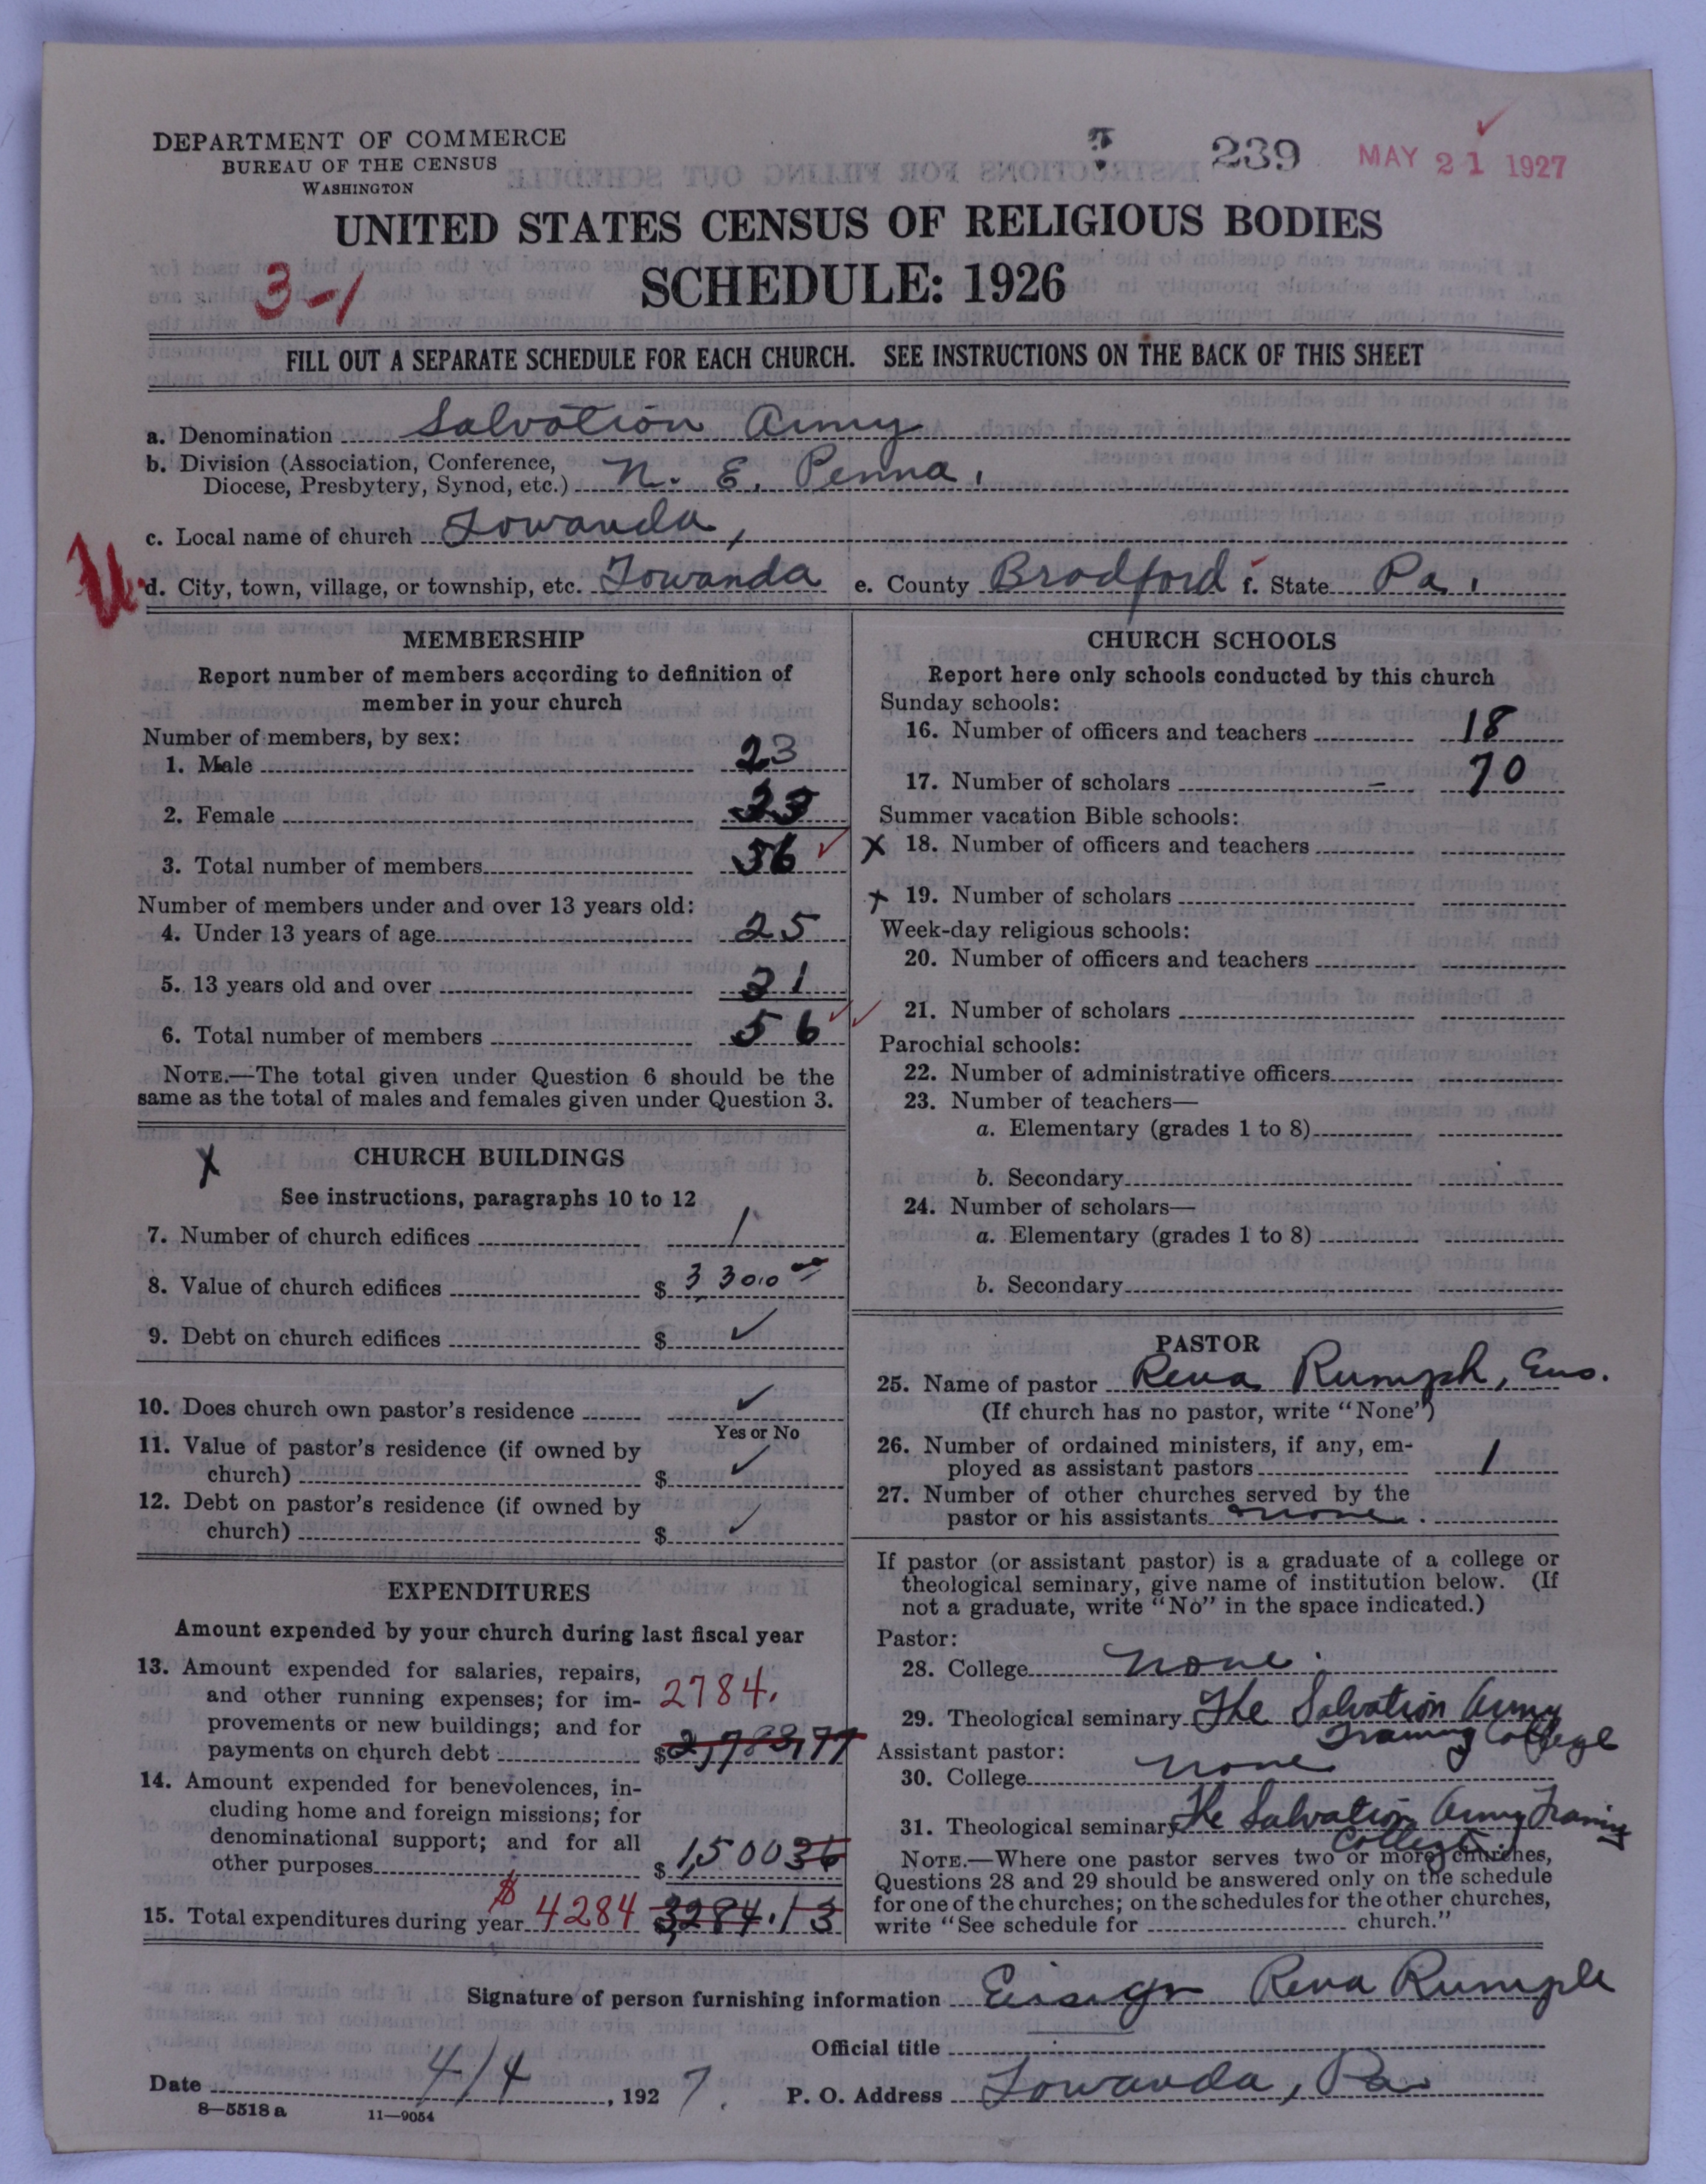 DEPARTMENT OF COMMERCE
BUREAU OF THE CENSUS
WASHINGTON
239 MAY 21 1927
UNITED STATES CENSUS OF RELIGIOUS BODIES
SCHEDULE: 1926
3-1
FILL OUT A SEPARATE SCHEDULE FOR EACH CHURCH. SEE INSTRUCTIONS ON THE BACK OF THIS SHEET
a. Denomination Salvation Army
b. Division (Association, Conference,
Diocese, Presbytery, Synod, etc.) N. E. Penna.
c. Local name of church Towanda,
d. City, town, village, or township, etc. Towanda e. County Bradford f. State Pa.
MEMBERSHIP
Report number of members according to definition of
member in your church
Number of members, by sex:
1. Male 23
2. Female
3. Total number of members 56
Number of members under and over 13 years old:
4. Under 13 years of age 25
5. 13 years old and over
6. Total number of members 56
NOTE.—The total given under Question 6 should be the
same as the total of males and females given under Question 3.
X CHURCH BUILDINGS
See instructions, paragraphs 10 to 12
7. Number of church edifices 1
8. Value of church edifices $ 3300.00
9. Debt on church edifices $ ✓
10. Does church own pastor's residence ✓
Yes or No
11. Value of pastor's residence (if owned by
church) $ ✓
12. Debt on pastor's residence (if owned by
church) $ ✓
EXPENDITURES
Amount expended by your church during last fiscal year
13. Amount expended for salaries, repairs,
and other running expenses; for im-
provements or new buildings; and for
payments on church debt 2784. $2,783,77
14. Amount expended for benevolences, in-
cluding home and foreign missions; for
denominational support; and for all
other purposes $ 1,50036
15. Total expenditures during year $ 4284 $3,284.13
CHURCH SCHOOLS
Report here only schools conducted by this church
Sunday schools:
16. Number of officers and teachers 18
17. Number of scholars 70
Summer vacation Bible schools:
X 18. Number of officers and teachers
X 19. Number of scholars
Week-day religious schools:
20. Number of officers and teachers
21. Number of scholars
Parochial schools:
22. Number of administrative officers
23. Number of teachers—
a. Elementary (grades 1 to 8)
b. Secondary
24. Number of scholars—
a. Elementary (grades 1 to 8)
b. Secondary
PASTOR
25. Name of pastor Reva Rumph, Ens.
(If church has no pastor, write "None")
26. Number of ordained ministers, if any, em-
ployed as assistant pastors 1
27. Number of other churches served by the
pastor or his assistants none.
If pastor (or assistant pastor) is a graduate of a college or
theological seminary, give name of institution below. (If
not a graduate, write "No" in the space indicated.)
Pastor:
28. College none.
29. Theological seminary The Salvation Army
Training College
Assistant pastor:
30. College none
31. Theological seminary The Salvation Army Training
College
NOTE.—Where one pastor serves two or more churches,
Questions 28 and 29 should be answered only on the schedule
for one of the churches; on the schedules for the other churches,
write "See schedule for church."
Signature of person furnishing information Ensign Reva Rumph
Official title
Date 4/4, 1927. P. O. Address Towanda, Pa.
8—5518 a 11—9054